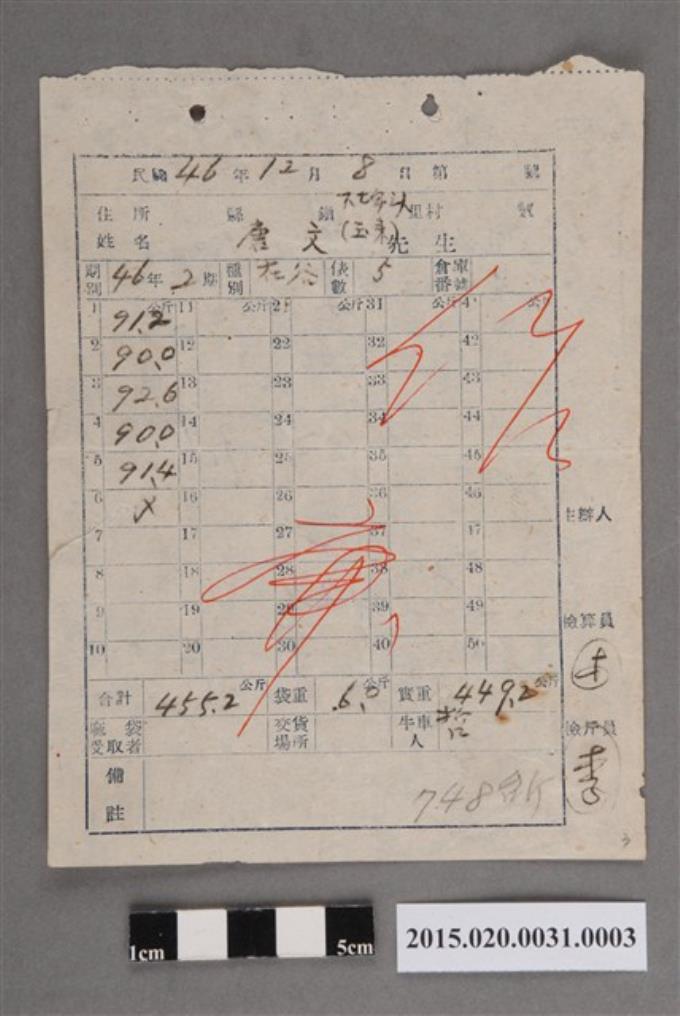 民國 46 年 12 月 8 日 第 號
住所 縣 鎮 里村 數
姓名 唐文 (玉東) 先生
期別 46年 2 期 種別 在谷 俵數 5 倉庫番號
1 91.2 公斤 11 公斤 21 公斤 31 公斤 41 公
2 90.0 12 22 32 42
3 92.6 13 23 33 43
4 90.0 14 24 34 44
5 91.4 15 25 35 45
6 〆 16 26 36 46
7 17 27 37 47
8 18 28 38 48
9 19 29 39 49
10 20 30 40 50
合計 455.2 公斤 袋重 6.0 公斤 實重 449.2 公斤
麻袋受取者 交貨場所 牛車人
備註 748台斤
主辦人
檢算員
檢斤員 李
3
1cm 5cm
2015.020.0031.0003